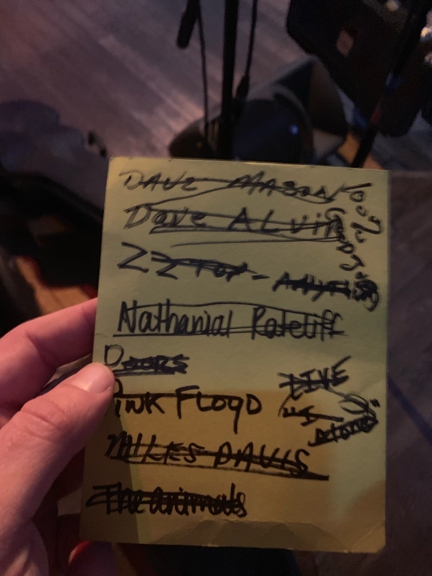 DAVE MASON
Dave ALVIN
ZZ TOP -
Nathanial Rateliff
DOORS
PINK FLOYD
MILES DAVIS
The animals
100%
LIVE